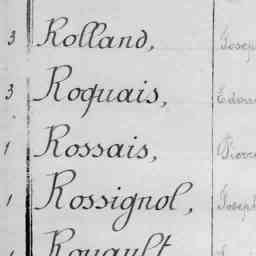 3 Rolland, Joseph
3 Roquais, Edoua
1 Rossais, Pierre
1 Rossignol, Joseph
Rouault